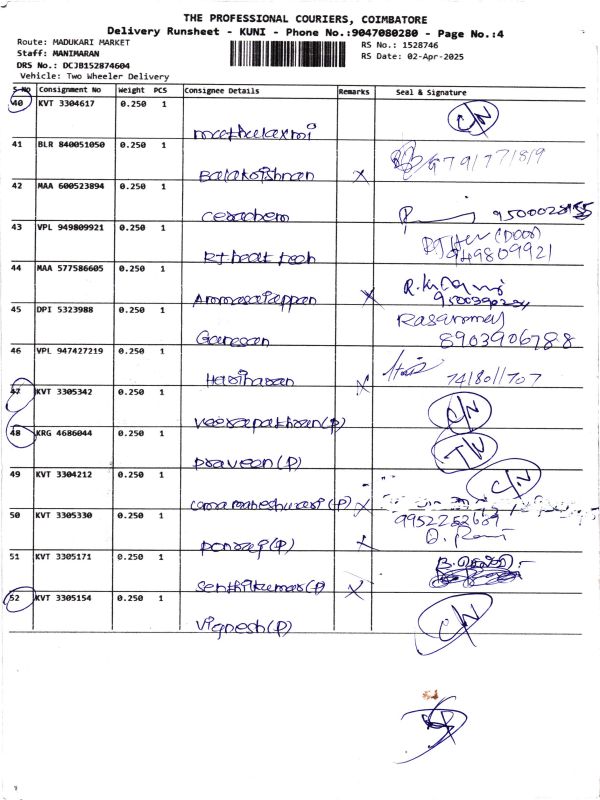 THE PROFESSIONAL COURIERS, COIMBATORE
Delivery Runsheet - KUNI - Phone No.:9047080280 - Page No.:4
Route: MADUKARI MARKET
RS No.: 1528746
Staff: MANIMARAN
RS Date: 02-Apr-2025
DRS No.: DCJB152874604
Vehicle: Two Wheeler Delivery
S No Consignment No Weight PCS Consignee Details Remarks Seal & Signature
40 KVT 3304617 0.250 1
C/N
41 BLR 840051050 0.250 1
Balakrishnan x
42 MAA 600523894 0.250 1
43 VPL 949809921 0.250 1
949809921
RJ heat tech
44 MAA 577586605 0.250 1
x
45 DPI 5323988 0.250 1
Ganesan 8903906788
46 VPL 947427219 0.250 1
Hariharan x
47 KVT 3305342 0.250 1
C/N
48 KRG 4686044 0.250 1
Praveen (P)
49 KVT 3304212 0.250 1
C/N
Umamaheshwari (P) x
50 KVT 3305330 0.250 1
Ponraj (P) x
51 KVT 3305171 0.250 1
Senthilkumar (P) x
52 KVT 3305154 0.250 1
C/N
Vignesh (P)